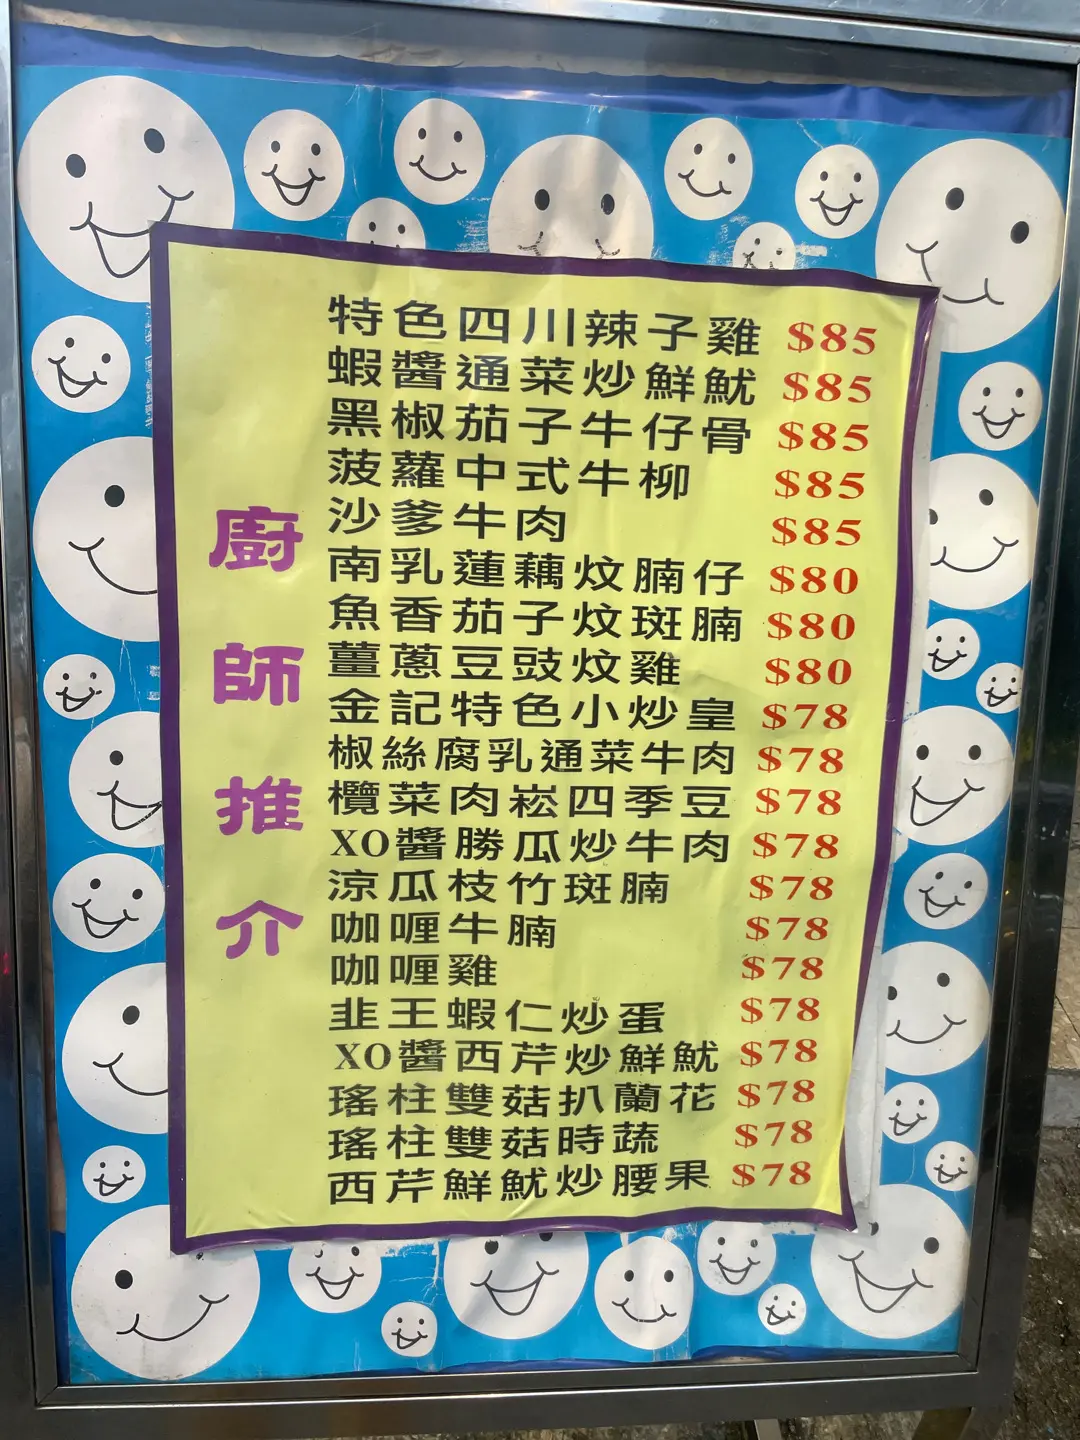 廚師推介
特色四川辣子雞 $85
蝦醬通菜炒鮮魷 $85
黑椒茄子牛仔骨 $85
菠蘿中式牛柳 $85
沙爹牛肉 $85
南乳蓮藕炆腩仔 $80
魚香茄子炆斑腩 $80
薑蔥豆豉炆雞 $80
金記特色小炒皇 $78
椒絲腐乳通菜牛肉 $78
欖菜肉崧四季豆 $78
XO醬勝瓜炒牛肉 $78
涼瓜枝竹斑腩 $78
咖喱牛腩 $78
咖喱雞 $78
韭王蝦仁炒蛋 $78
XO醬西芹炒鮮魷 $78
瑤柱雙菇扒蘭花 $78
瑤柱雙菇時蔬 $78
西芹鮮魷炒腰果 $78